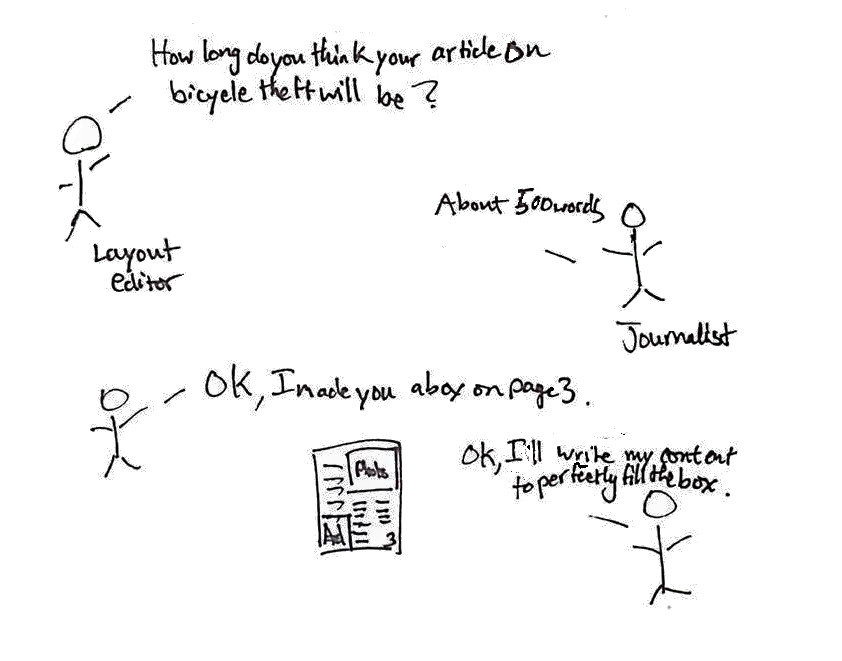 How long do you think your article on
bicycle theft will be?
Layout
editor
About 500 words
Journalist
OK, I made you a box on page 3.
Photo
Ad
3
OK, I'll write my content
to perfectly fill the box.